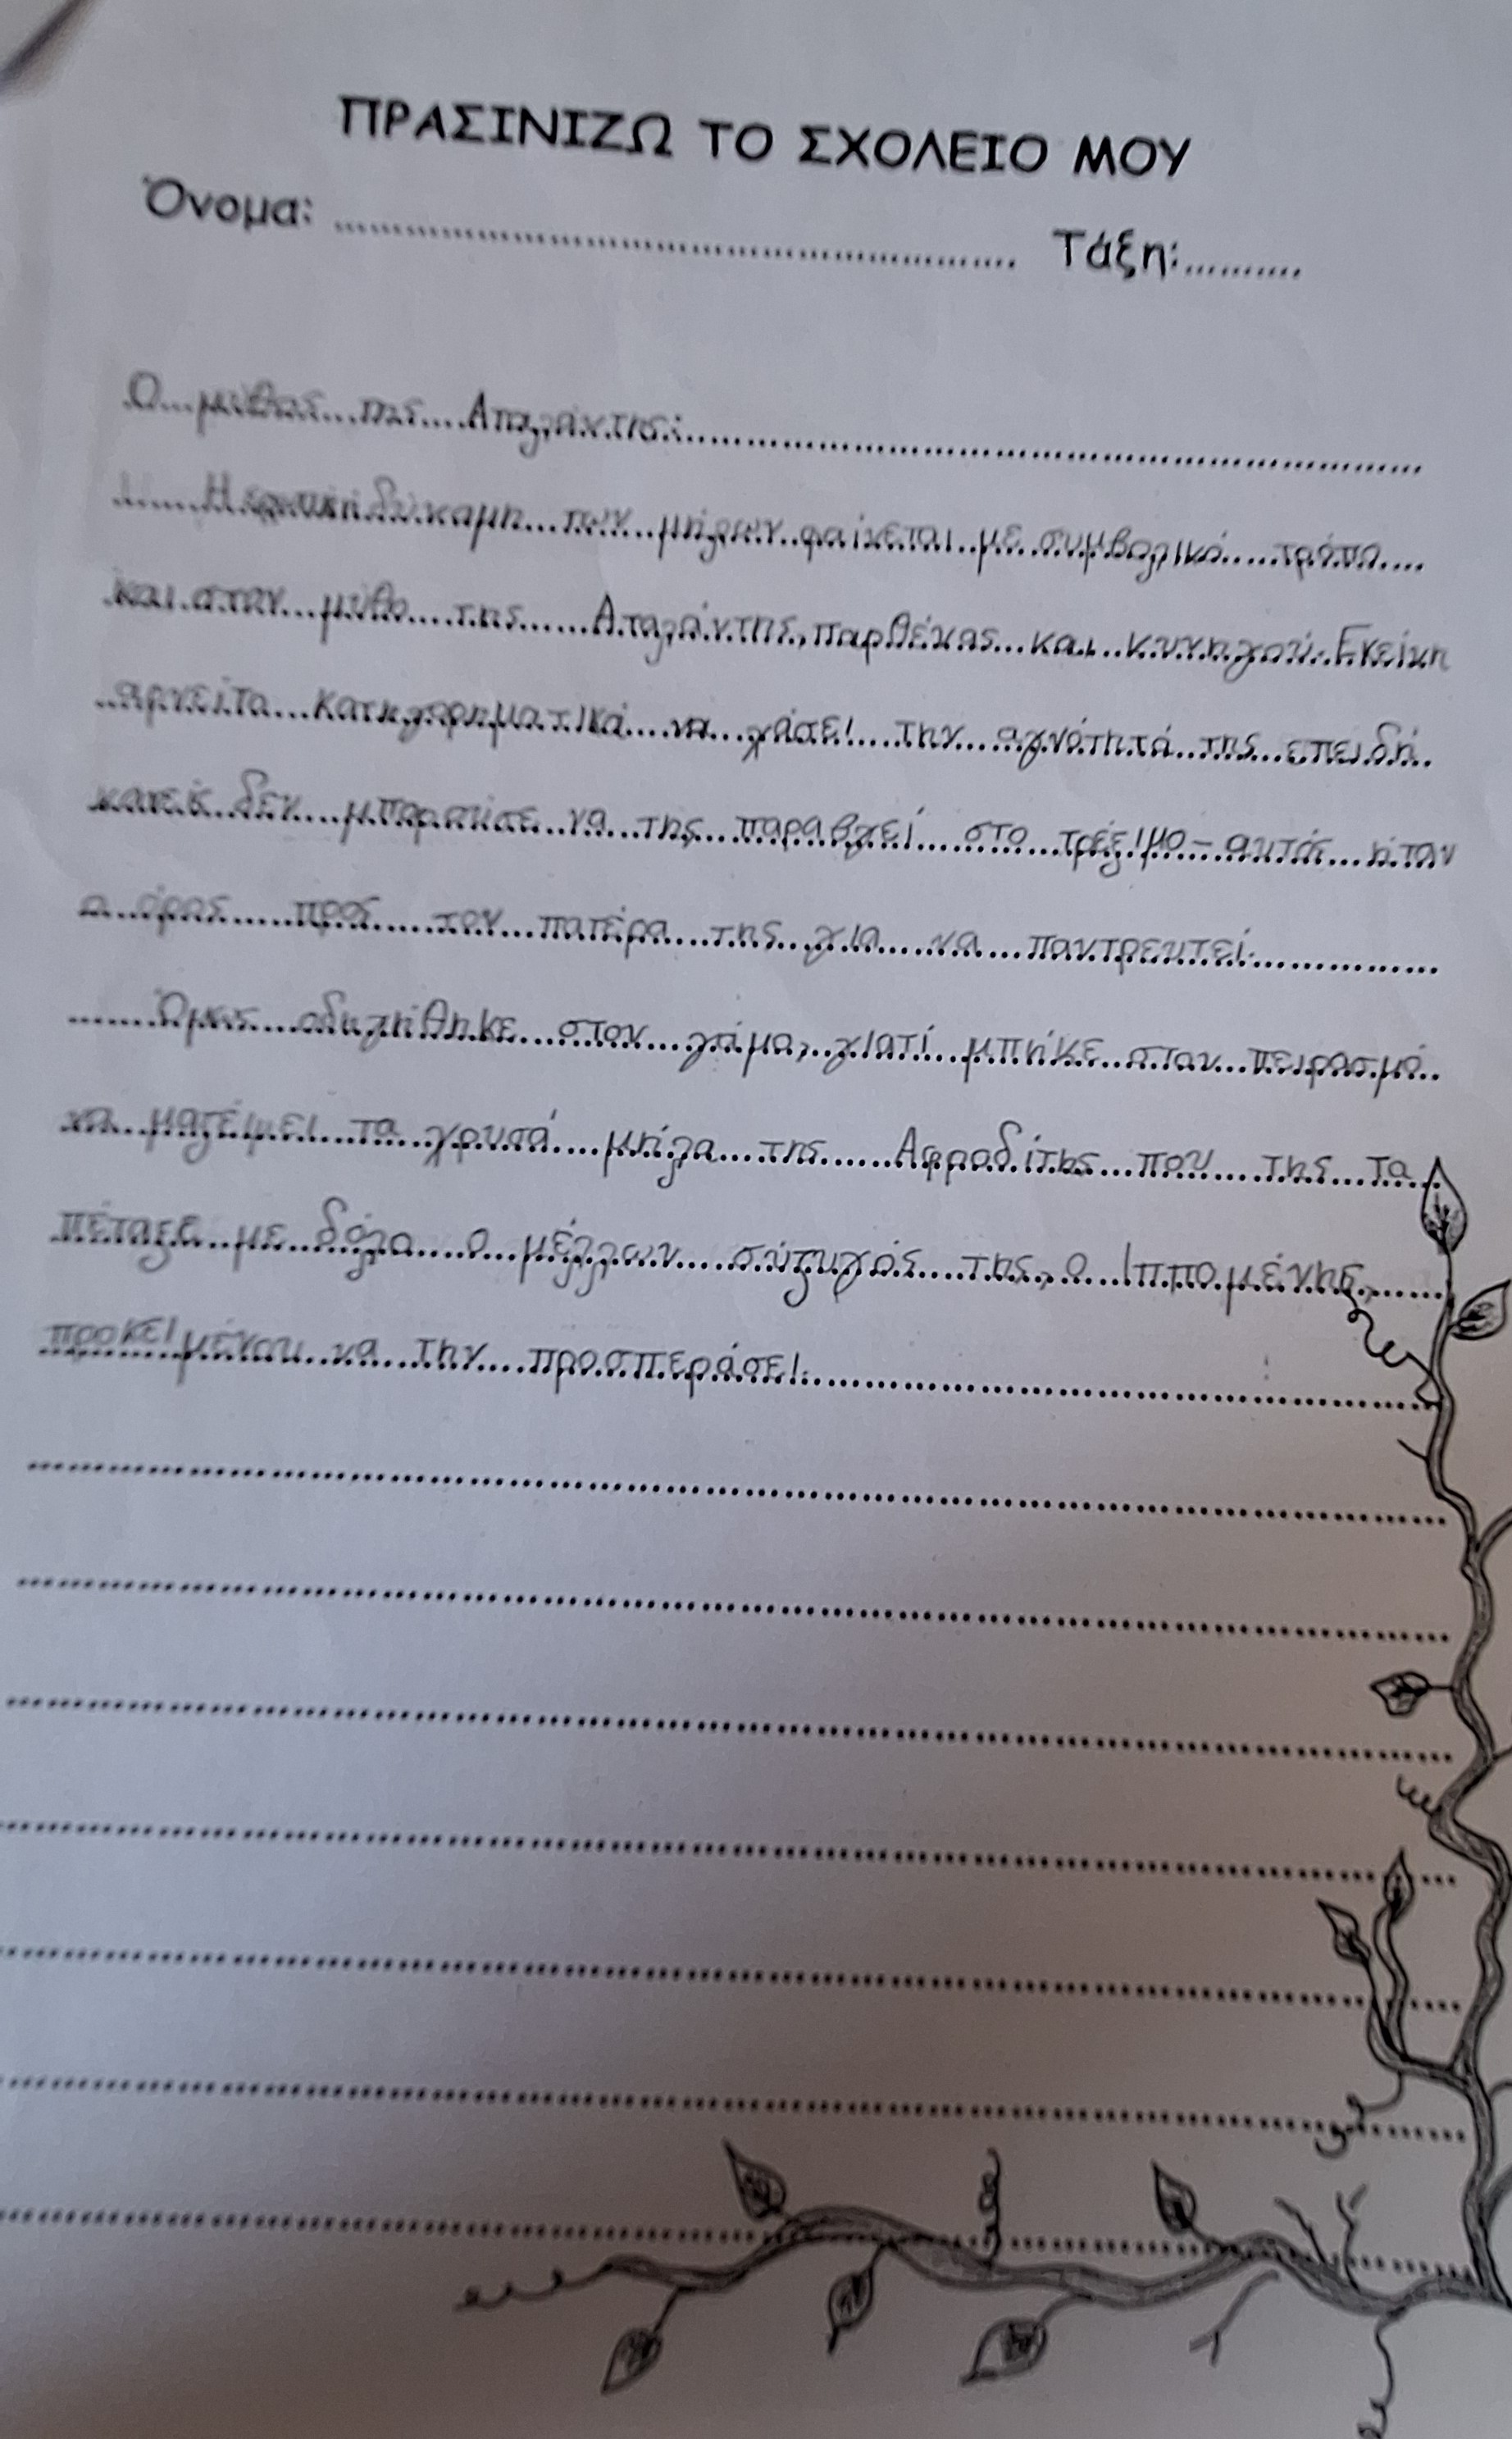 ΠΡΑΣΙΝΙΖΩ ΤΟ ΣΧΟΛΕΙΟ ΜΟΥ
Όνομα: Τάξη:
Ο μύθος της Αταλάντης:
Η ερωτική δύναμη των μήλων φαίνεται με συμβολικό τρόπο
και στον μύθο της Αταλάντης, παρθένας και κυνηγού. Εκείνη
αρνείτα κατηγορηματικά να χάσει την αγνότητά της επειδή
κανείς δεν μπορούσε να της παραβγεί στο τρέξιμο - αυτός ήταν
ο όρος προς τον πατέρα της για να παντρευτεί.
Όμως οδηγήθηκε στον γάμο, γιατί μπήκε στον πειρασμό
να μαζέψει τα χρυσά μήλα της Αφροδίτης που της τα
πέταξε με δόλο ο μέλλων σύζυγός της, ο Ιππομένης,
προκειμένου να την προσπεράσει.